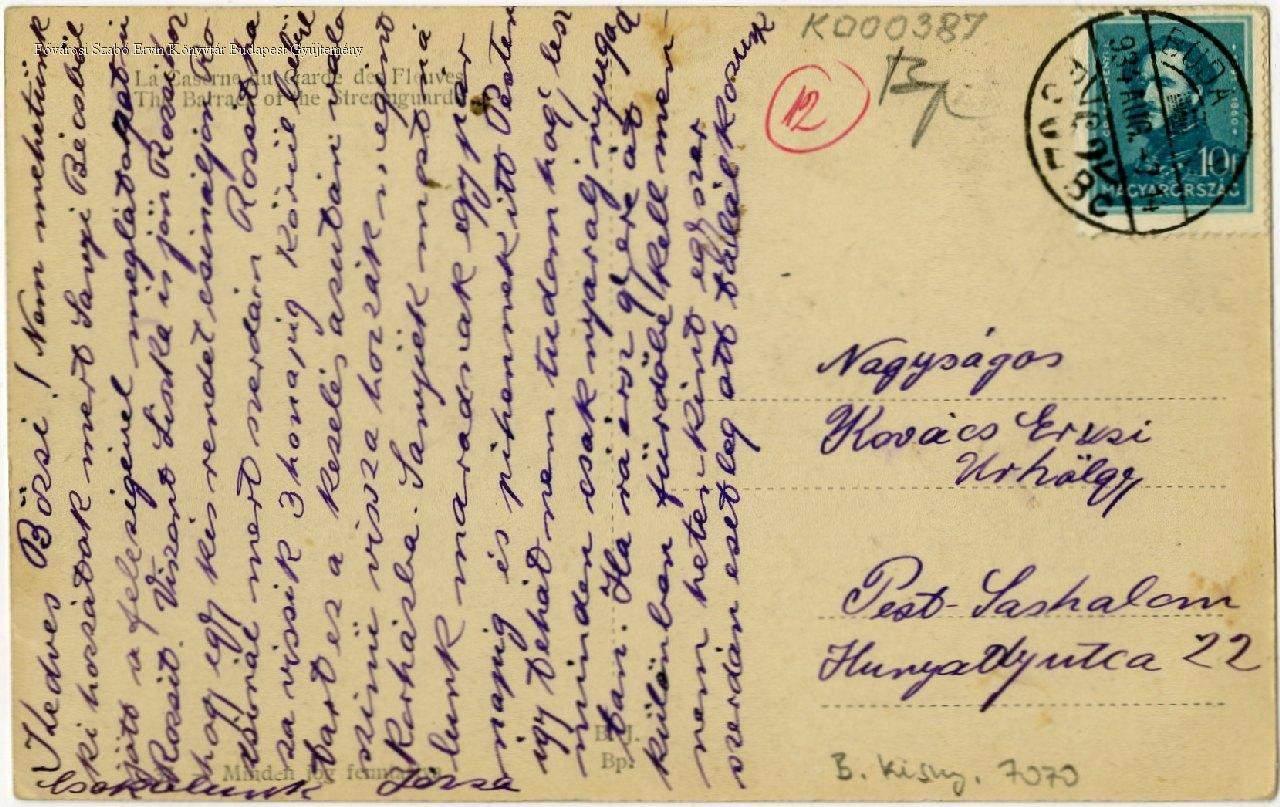 Fővárosi Szabó Ervin Könyvtár Budapest Gyűjtemény
La Caserne du Garde de Fleuves
The Barrack of the Streamguards
Kedves Bözsi! Nem mehetünk
ki hozzátok mert Sanyi Bécsből
jött a feleségével meglátogatni
Rózsit. Viszont Liska is jön Rózsihoz
hogy egy kis rendet csináljon Ró
zsinál mert szerdán Rózsit ha
za viszik 3 honapig körül belül
tart ez a kezelés azután való
színü vissza hozzák megint
Korházba. Sanyiék most ná
lunk maradnak egy pár
napig és pihennek itt Pesten
igy tehát nem tudom hogy lesz
minden csak nyaralj nyugod
tan. Ha rá érsz gyere át
különben fürdőbe kell men
nem hetenkint egyszer
szerdán esetleg ott találkozunk
Csokolunk Józsa
Minden jog fenntartva
B. J.
Bp.
K000387
12
Bp
BUDA
934
10f
MAGYARORSZÁG
Nagyságos
Kovács Erzsi
Urhölgy
Pest-Sashalom
Hunyadyutca 22
B. Kisny. 7070